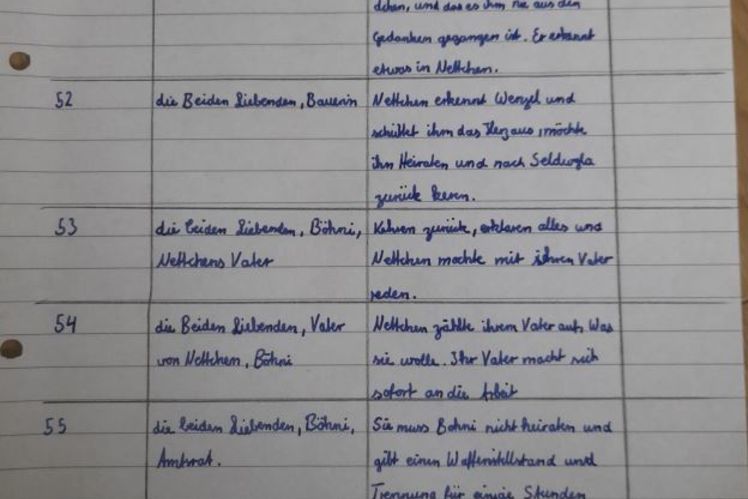 dchen, und das es ihm nie aus den
Gedanken gegangen ist. Er erkennt
etwas in Nettchen.
52 die Beiden Liebenden, Bauerin Nettchen erkennt Wenzel und
schüttet ihm das Herz aus, möchte
ihn Heiraten und nach Seldwyla
zurück keren.
53 die beiden Liebenden, Böhni, Kehren zurück, erklären alles und
Nettchens Vater Nettchen mochte mit ihren Vater
reden.
54 die Beiden Liebenden, Vater Nettchen zählte ihrem Vater auf, Was
von Nettchen, Böhni sie wolle. Ihr Vater macht sich
sofort an die Arbeit
55 die beiden Liebenden, Böhni, Sie muss Bohni nicht heiraten und
Amtsrat. gibt einen Waffenstillstand und
Trennung für einige Stunden